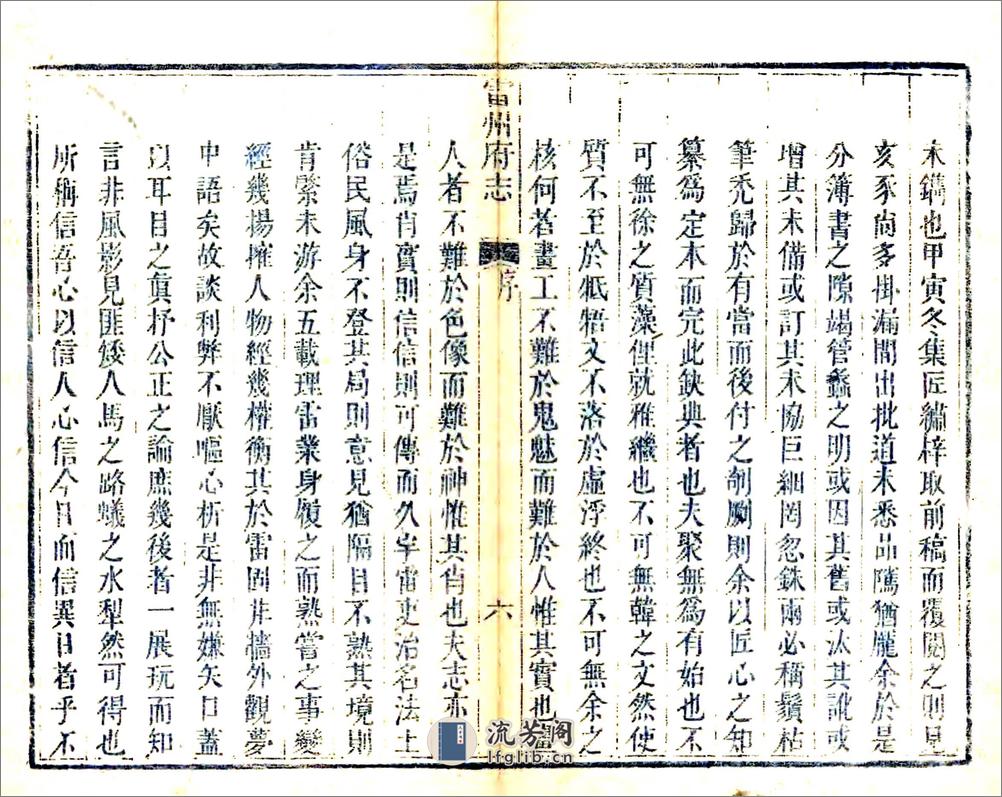 未鐫也甲寅冬集匠繡梓取前稿而覆閱之則見
亥豕尚多掛漏間出批道未悉品隲猶龐余於是
分簿書之隙竭管蠡之明或因其舊或汰其訛或
增其未備或訂其未協巨細罔忽銖兩必稱鬚枯
筆禿歸於有當而後付之剞劂則余以匠心之知
纂為定本而完此缺典者也夫聚無為有始也不
可無徐之質藻俚就雅繼也不可無韓之文然使
質不至於牴牾文不落於虛浮終也不可無余之
核何者畫工不難於鬼魅而難於人惟其實也
雷州府志
序
六
人者不難於色像而難於神惟其肖也夫志亦
是焉肖實則信信則可傳而久牟雷吏治名法土
俗民風身不登其局則意見猶隔目不熟其境則
肯綮未游余五載理雷業身履之而熟嘗之事變
經幾揚搉人物經幾權衡其於雷固非牆外觀夢
中語矣故談利弊不厭嘔心析是非無嫌矢口蓋
以耳目之真抒公正之論庶幾後者一展玩而知
言非風影見匪矮人馬之路蟻之水犁然可得也
所稱信吾心以信人心信今日而信異日者乎不
流芳阁
lfglib.cn